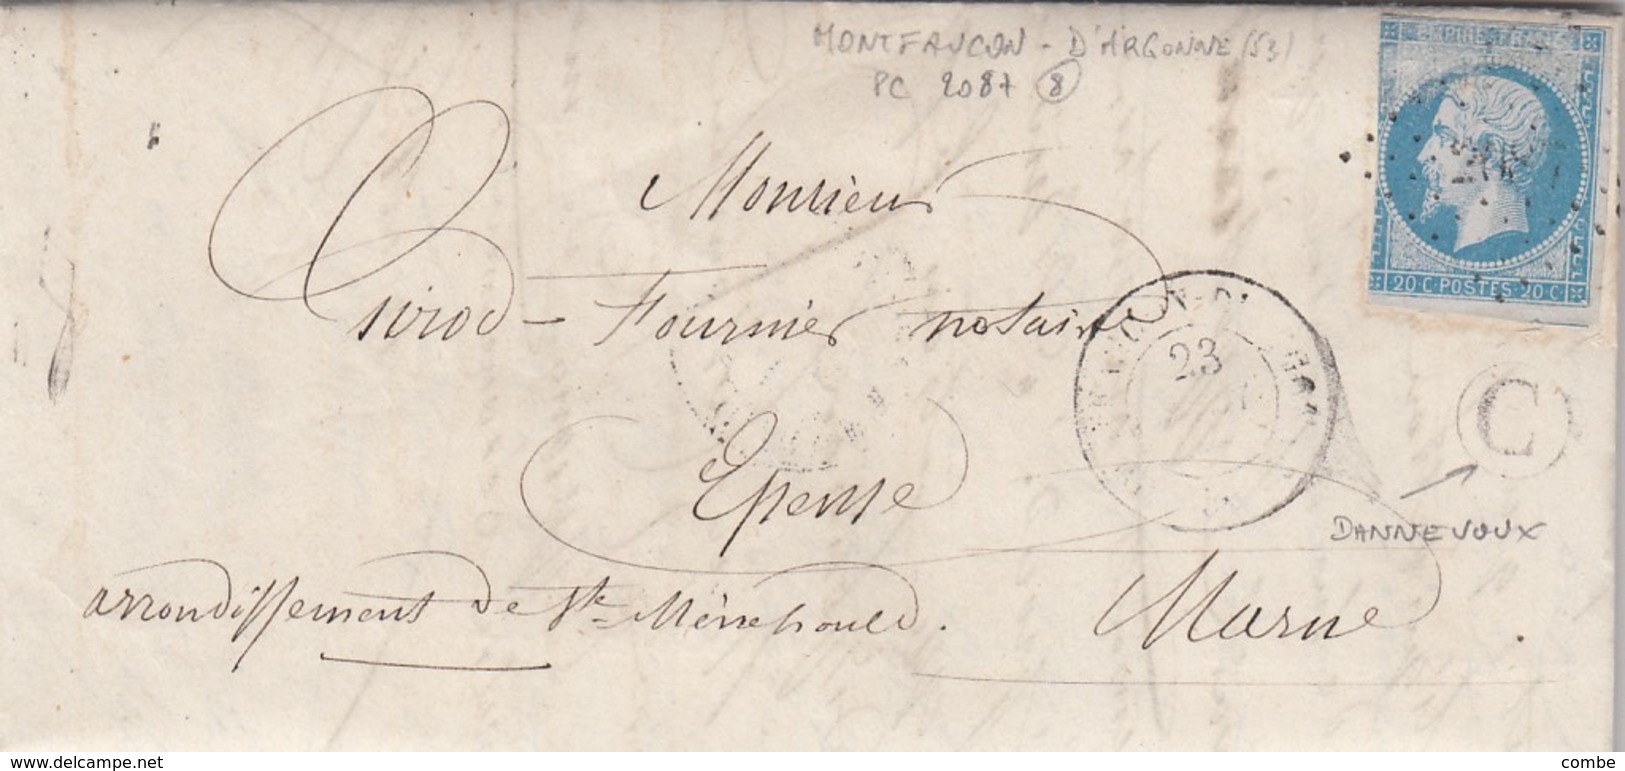 MONTFAUCON - D'ARGONNE (53)
PC 2087 8
EMPIRE FRANC
20 C POSTES 20 C
Monsieur
Girod - Fournier notaire
23
C
Epense
DANNEVOUX
arrondissement de Ste Ménéhould. Marne
www.delcampe.net
combe